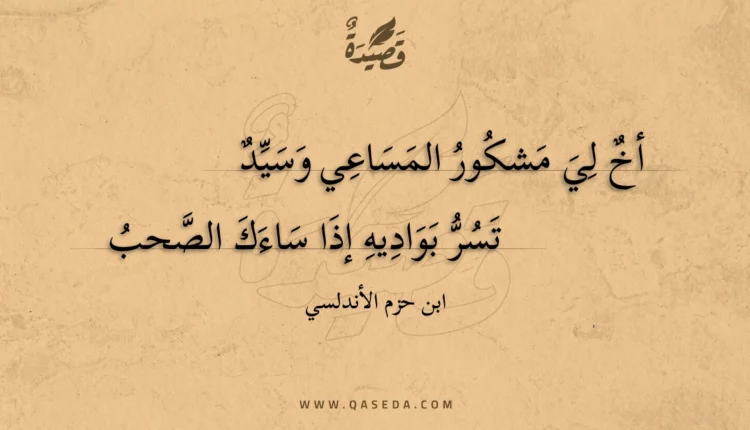 قَصِيْدَةٌ
أخٌ لِيَ مَشكُورُ المَسَاعِي وَسَيِّدٌ
تَسُرُّ بَوَادِيهِ إذَا سَاءَكَ الصَّحبُ
ابن حزم الأندلسي
WWW.QASEDA.COM